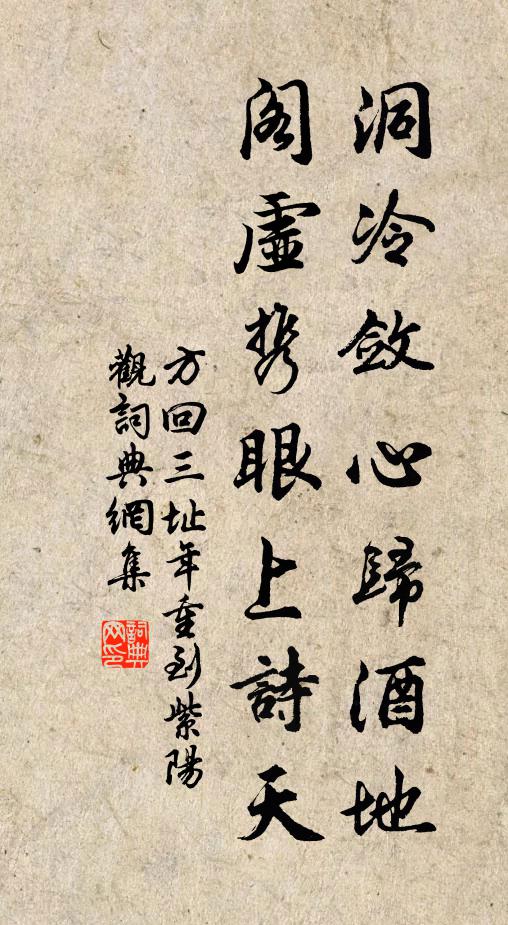 洞冷斂心歸酒地
閣虛携眼上詩天
方回三址年重到紫陽
觀詞典網集
詞典
网印